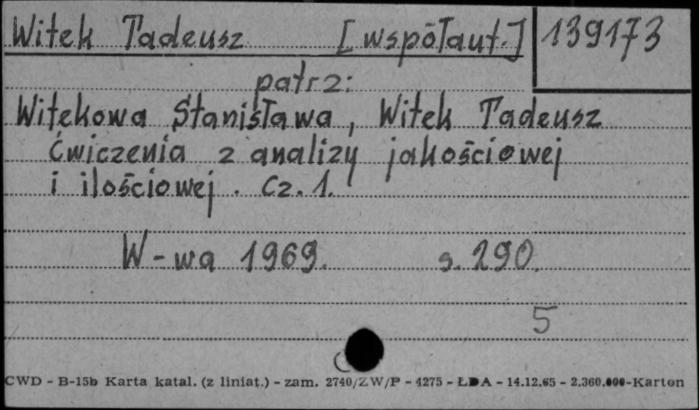 Witek Tadeusz [współaut.] 139173
patrz:
Witekowa Stanisława, Witek Tadeusz
Ćwiczenia z analizy jakościowej
i ilościowej. Cz. 1.
W-wa 1969. s. 290.
5
CWD - B-15b Karta katal. (z liniat.) - zam. 2740/ZW/P - 4275 - ŁDA - 14.12.65 - 2.360.000-Karton